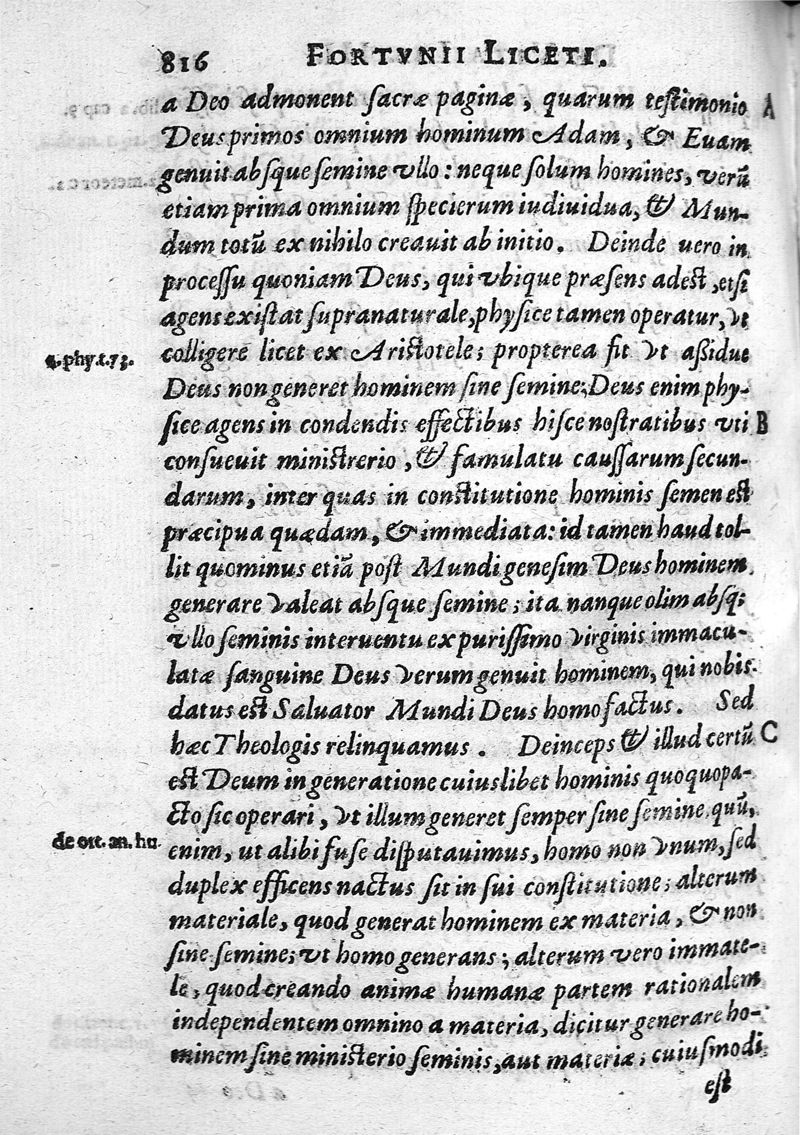 816 FORTVNII LICETI.
a Deo admonent sacræ paginæ, quarum testimonio A
Deus primos omnium hominum Adam, & Euam
genuit absque semine vllo: neque solum homines, verũ
etiam prima omnium specierum iudiuidua, & Mun-
dum totũ ex nihilo creauit ab initio. Deinde uero in
processu quoniam Deus, qui vbique præsens adest, etsi
agens existat supranaturale, physice tamen operatur, vt
4. phy. t. 73. colligere licet ex Aristotele; propterea fit vt assidue
Deus non generet hominem sine semine; Deus enim phy-
sice agens in condendis effectibus hisce nostratibus vti B
consueuit ministrerio, & famulatu caussarum secun-
darum, inter quas in constitutione hominis semen est
præcipua quædam, & immediata: id tamen haud tol-
lit quominus etiã post Mundi genesim Deus hominem
generare valeat absque semine; ita nanque olim absq;
vllo seminis interuentu ex purissimo virginis immacu-
latæ sanguine Deus verum genuit hominem, qui nobis
datus est Saluator Mundi Deus homo factus. Sed
hæc Theologis relinquamus. Deinceps & illud certũ C
est Deum in generatione cuiuslibet hominis quoquopa-
cto sic operari, vt illum generet semper sine semine. quũ,
de ort. an. hu. enim, ut alibi fuse disputauimus, homo non vnum, sed
duplex efficens nactus sit in sui constitutione; alterum
materiale, quod generat hominem ex materia, & non
sine semine; vt homo generans; alterum vero immate-
le, quod creando animæ humanæ partem rationalem
independentem omnino a materia, dicitur generare ho-
minem sine ministerio seminis, aut materiæ; cuiusmodi
est